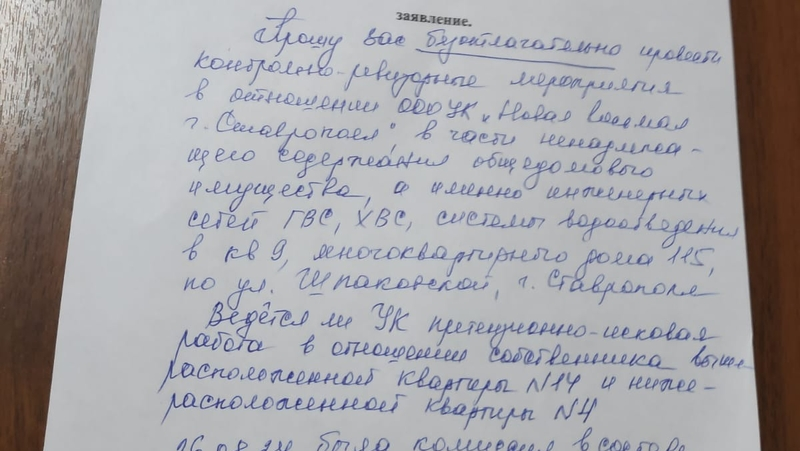 заявление.
Прошу вас безотлагательно провести
контрольно-ревизорные мероприятия
в отношении ООО УК „Новая восьмая
г. Ставрополя", в части ненадлежа-
щего содержания общедомового
имущества, а именно инженерных
сетей ГВС, ХВС, системы водоотведения
в кв 9, многоквартирного дома 115,
по ул. Шпаковской, г. Ставрополя
Ведётся ли УК претензионно-исковая
работа в отношении собственника выше-
расположенной квартиры N14 и ниже-
расположенной квартиры N4
была комиссия в составе